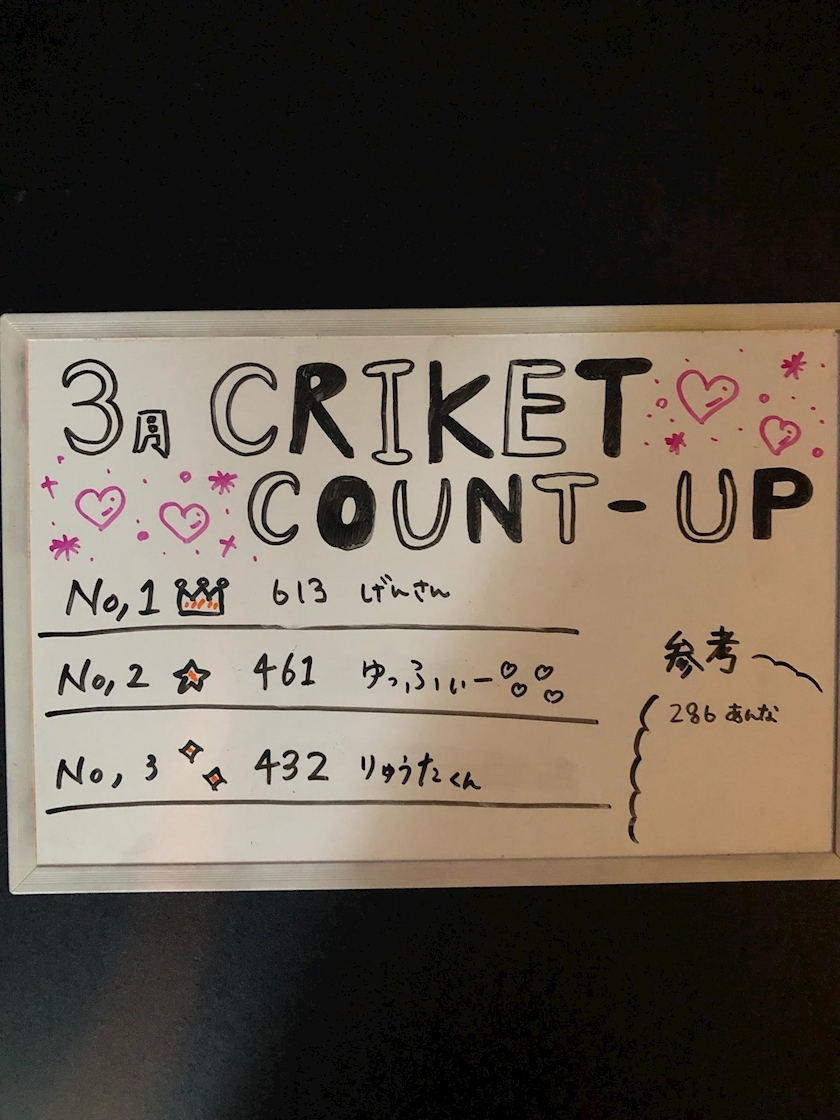 3月 CRIKET
COUNT-UP
No,1 613 げんさん
No,2 461 ゆっふぃー
No,3 432 りゅうたくん
参考
286 あんな